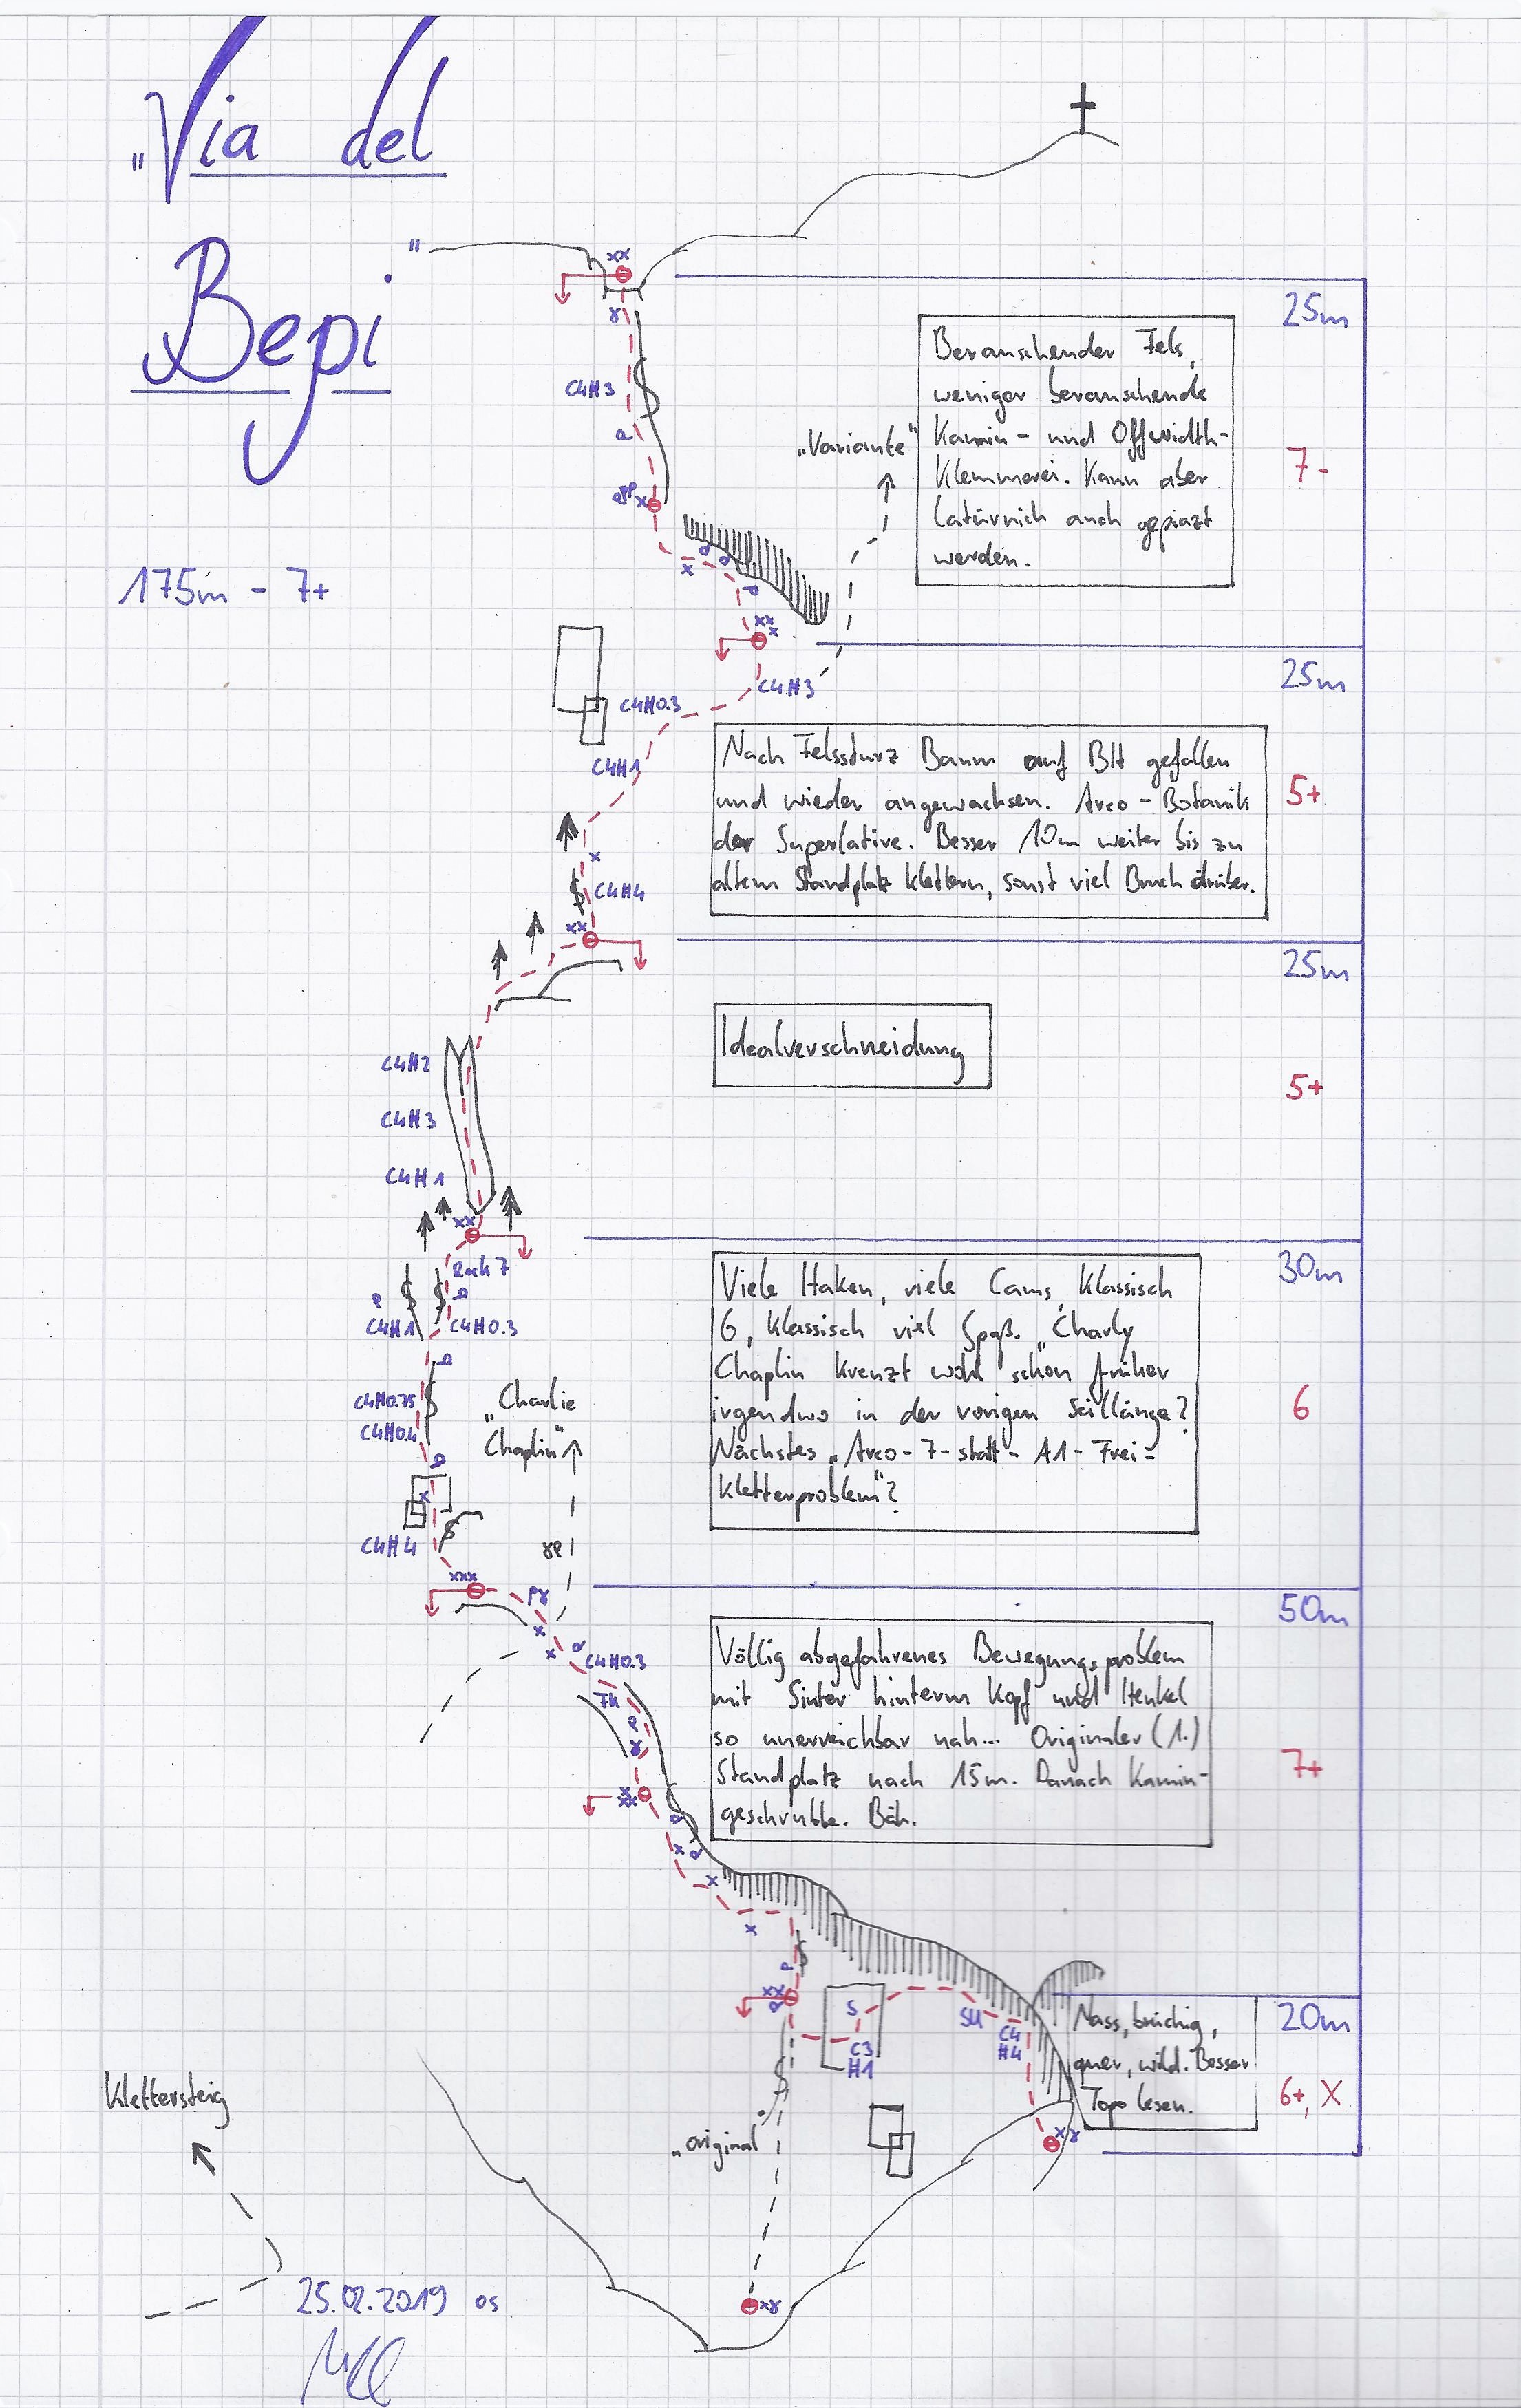 „Via del
Bepi"
175m - 7+
25m
Berauschender Fels,
weniger berauschende
Kamin- und Offwidth-
Klemmerei. Kann aber
latürnich auch gepiazt
werden.
7-
„Variante"
C4H3
25m
C4H3
C4H0.3
C4H1
Nach Felssturz Baum auf BH gefallen
und wieder angewachsen. Arco-Botanik
der Superlative. Besser 10m weiter bis zu
altem Standplatz klettern, sonst viel Bruch drüber.
5+
C4H4
25m
Idealverschneidung
5+
C4H2
C4H3
C4H1
30m
Rock 7
C4H1
C4H0.3
Viele Haken, viele Cams, Klassisch
6, klassisch viel Spaß. „Charly
Chaplin kreuzt wohl schon früher
irgendwo in der vorigen Seillänge?
Nächstes „Arco-7-statt-A1-Frei-
kletterproblem"?
6
C4H0.75
C4H0.4
„Charlie
Chaplin"
C4H4
50m
C4H0.3
Völlig abgefahrenes Bewegungsproblem
mit Sinter hinterm Kopf und Henkel
so unerreichbar nah... Originaler (1.)
Standplatz nach 15m. Danach Kamin-
geschrubbe. Bäh.
7+
20m
Nass, brüchig,
quer, wild. Besser
Topo lesen.
6+, X
S
SU
C4
H4
C3
H1
„original
Klettersteig
25.02.2019 os